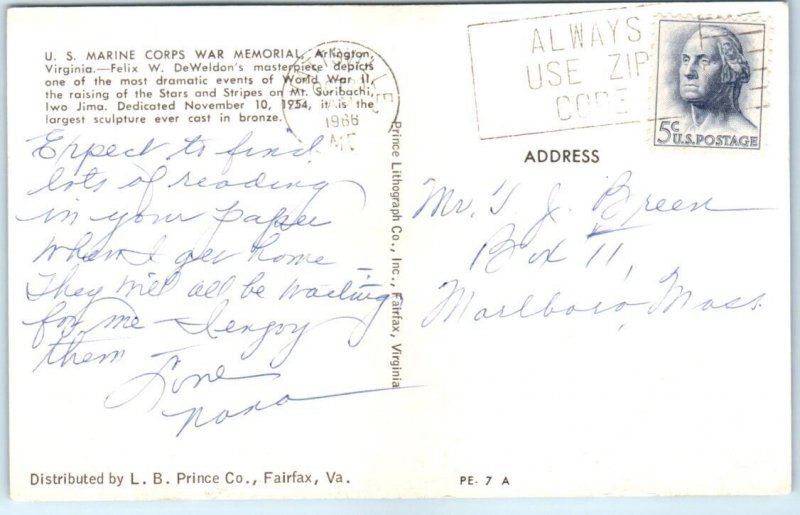 U. S. MARINE CORPS WAR MEMORIAL, Arlington,
Virginia.—Felix W. DeWeldon's masterpiece depicts
one of the most dramatic events of World War II,
the raising of the Stars and Stripes on Mt. Suribachi,
Iwo Jima. Dedicated November 10, 1954, it is the
largest sculpture ever cast in bronze.
Expect to find
lots of reading
in your paper
when I get home —
They will all be waiting
for me — I enjoy
them
Love
Nana
Distributed by L. B. Prince Co., Fairfax, Va.
Prince Lithograph Co., Inc., Fairfax, Virginia
1966
ALWAYS
USE ZIP
CODE
5c
U.S. POSTAGE
ADDRESS
Mr. T. J. Breen
Box 11,
Marlboro, Mass.
PE- 7 A